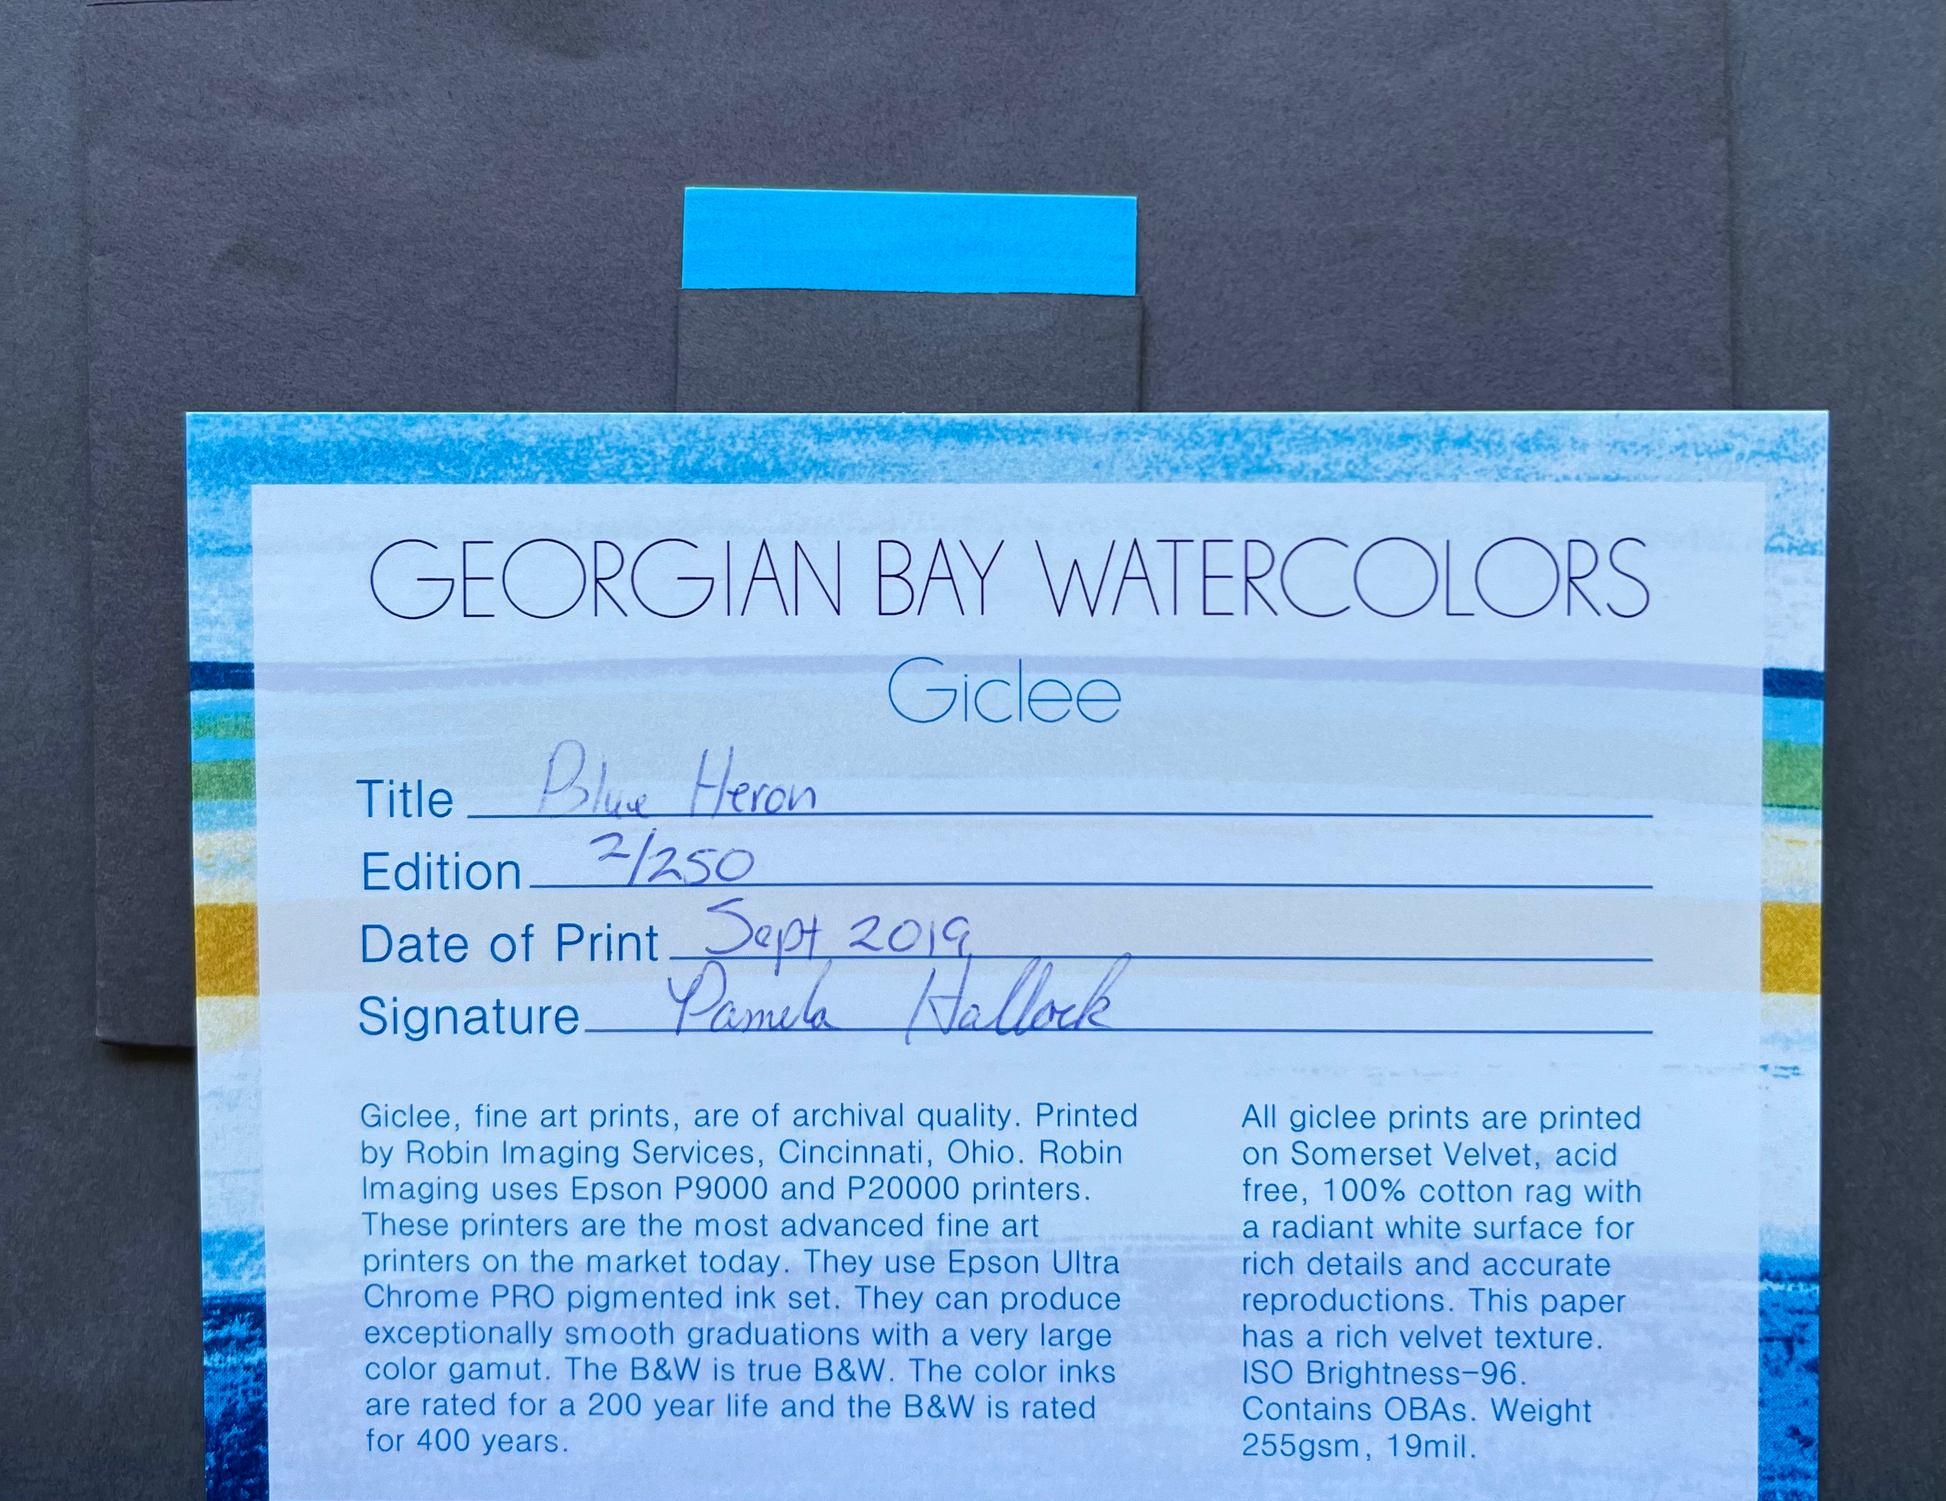 GEORGIAN BAY WATERCOLORS
Giclee
Title Blue Heron
Edition 2/250
Date of Print Sept 2019
Signature Pamela Hallock
Giclee, fine art prints, are of archival quality. Printed
by Robin Imaging Services, Cincinnati, Ohio. Robin
Imaging uses Epson P9000 and P20000 printers.
These printers are the most advanced fine art
printers on the market today. They use Epson Ultra
Chrome PRO pigmented ink set. They can produce
exceptionally smooth graduations with a very large
color gamut. The B&W is true B&W. The color inks
are rated for a 200 year life and the B&W is rated
for 400 years.
All giclee prints are printed
on Somerset Velvet, acid
free, 100% cotton rag with
a radiant white surface for
rich details and accurate
reproductions. This paper
has a rich velvet texture.
ISO Brightness–96.
Contains OBAs. Weight
255gsm, 19mil.